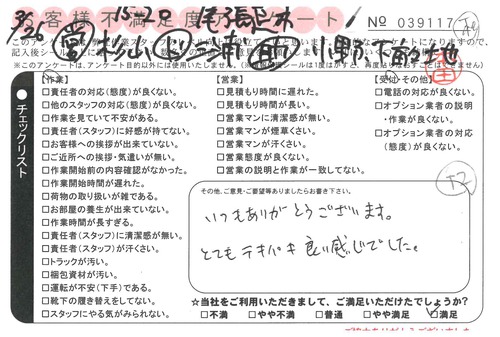 お客様不満足度アンケート
№ 039117
【作業】
□責任者の対応(態度)が良くない。
□他のスタッフの対応(態度)が良くない。
□作業を見ていて不安がある。
□責任者(スタッフ)に好感が持てない。
□お客様への挨拶が出来ていない。
□ご近所への挨拶・気遣いが無い。
□作業開始前の内容確認がなかった。
□作業開始時間が遅れた。
□荷物の取り扱いが雑である。
□お部屋の養生が出来ていない。
□作業時間が長すぎる。
□責任者(スタッフ)に清潔感が無い。
□責任者(スタッフ)が汗くさい。
□トラックが汚い。
□梱包資材が汚い。
□運転が不安(下手)である。
□靴下の履き替えをしてない。
□スタッフにやる気がみられない。
【営業】
□見積もり時間に遅れた。
□見積もり時間が長い。
□営業マンに清潔感が無い。
□営業マンが煙草くさい。
□営業マンが汗くさい。
□営業態度が良くない。
□営業の説明と作業が一致してない。
【受付その他】
□電話の対応が良くない。
□オプション業者の説明
・作業が良くない。
□オプション業者の対応
(態度)が良くない。
チェックリスト
その他、ご意見・ご要望等ありましたらお書き下さい。
いつもありがとうございます。
とても テキパキ 良い感じでした。
☆当社をご利用いただきまして、ご満足いただけたでしょうか?
□不満 □やや不満 □普通 □やや満足 □満足